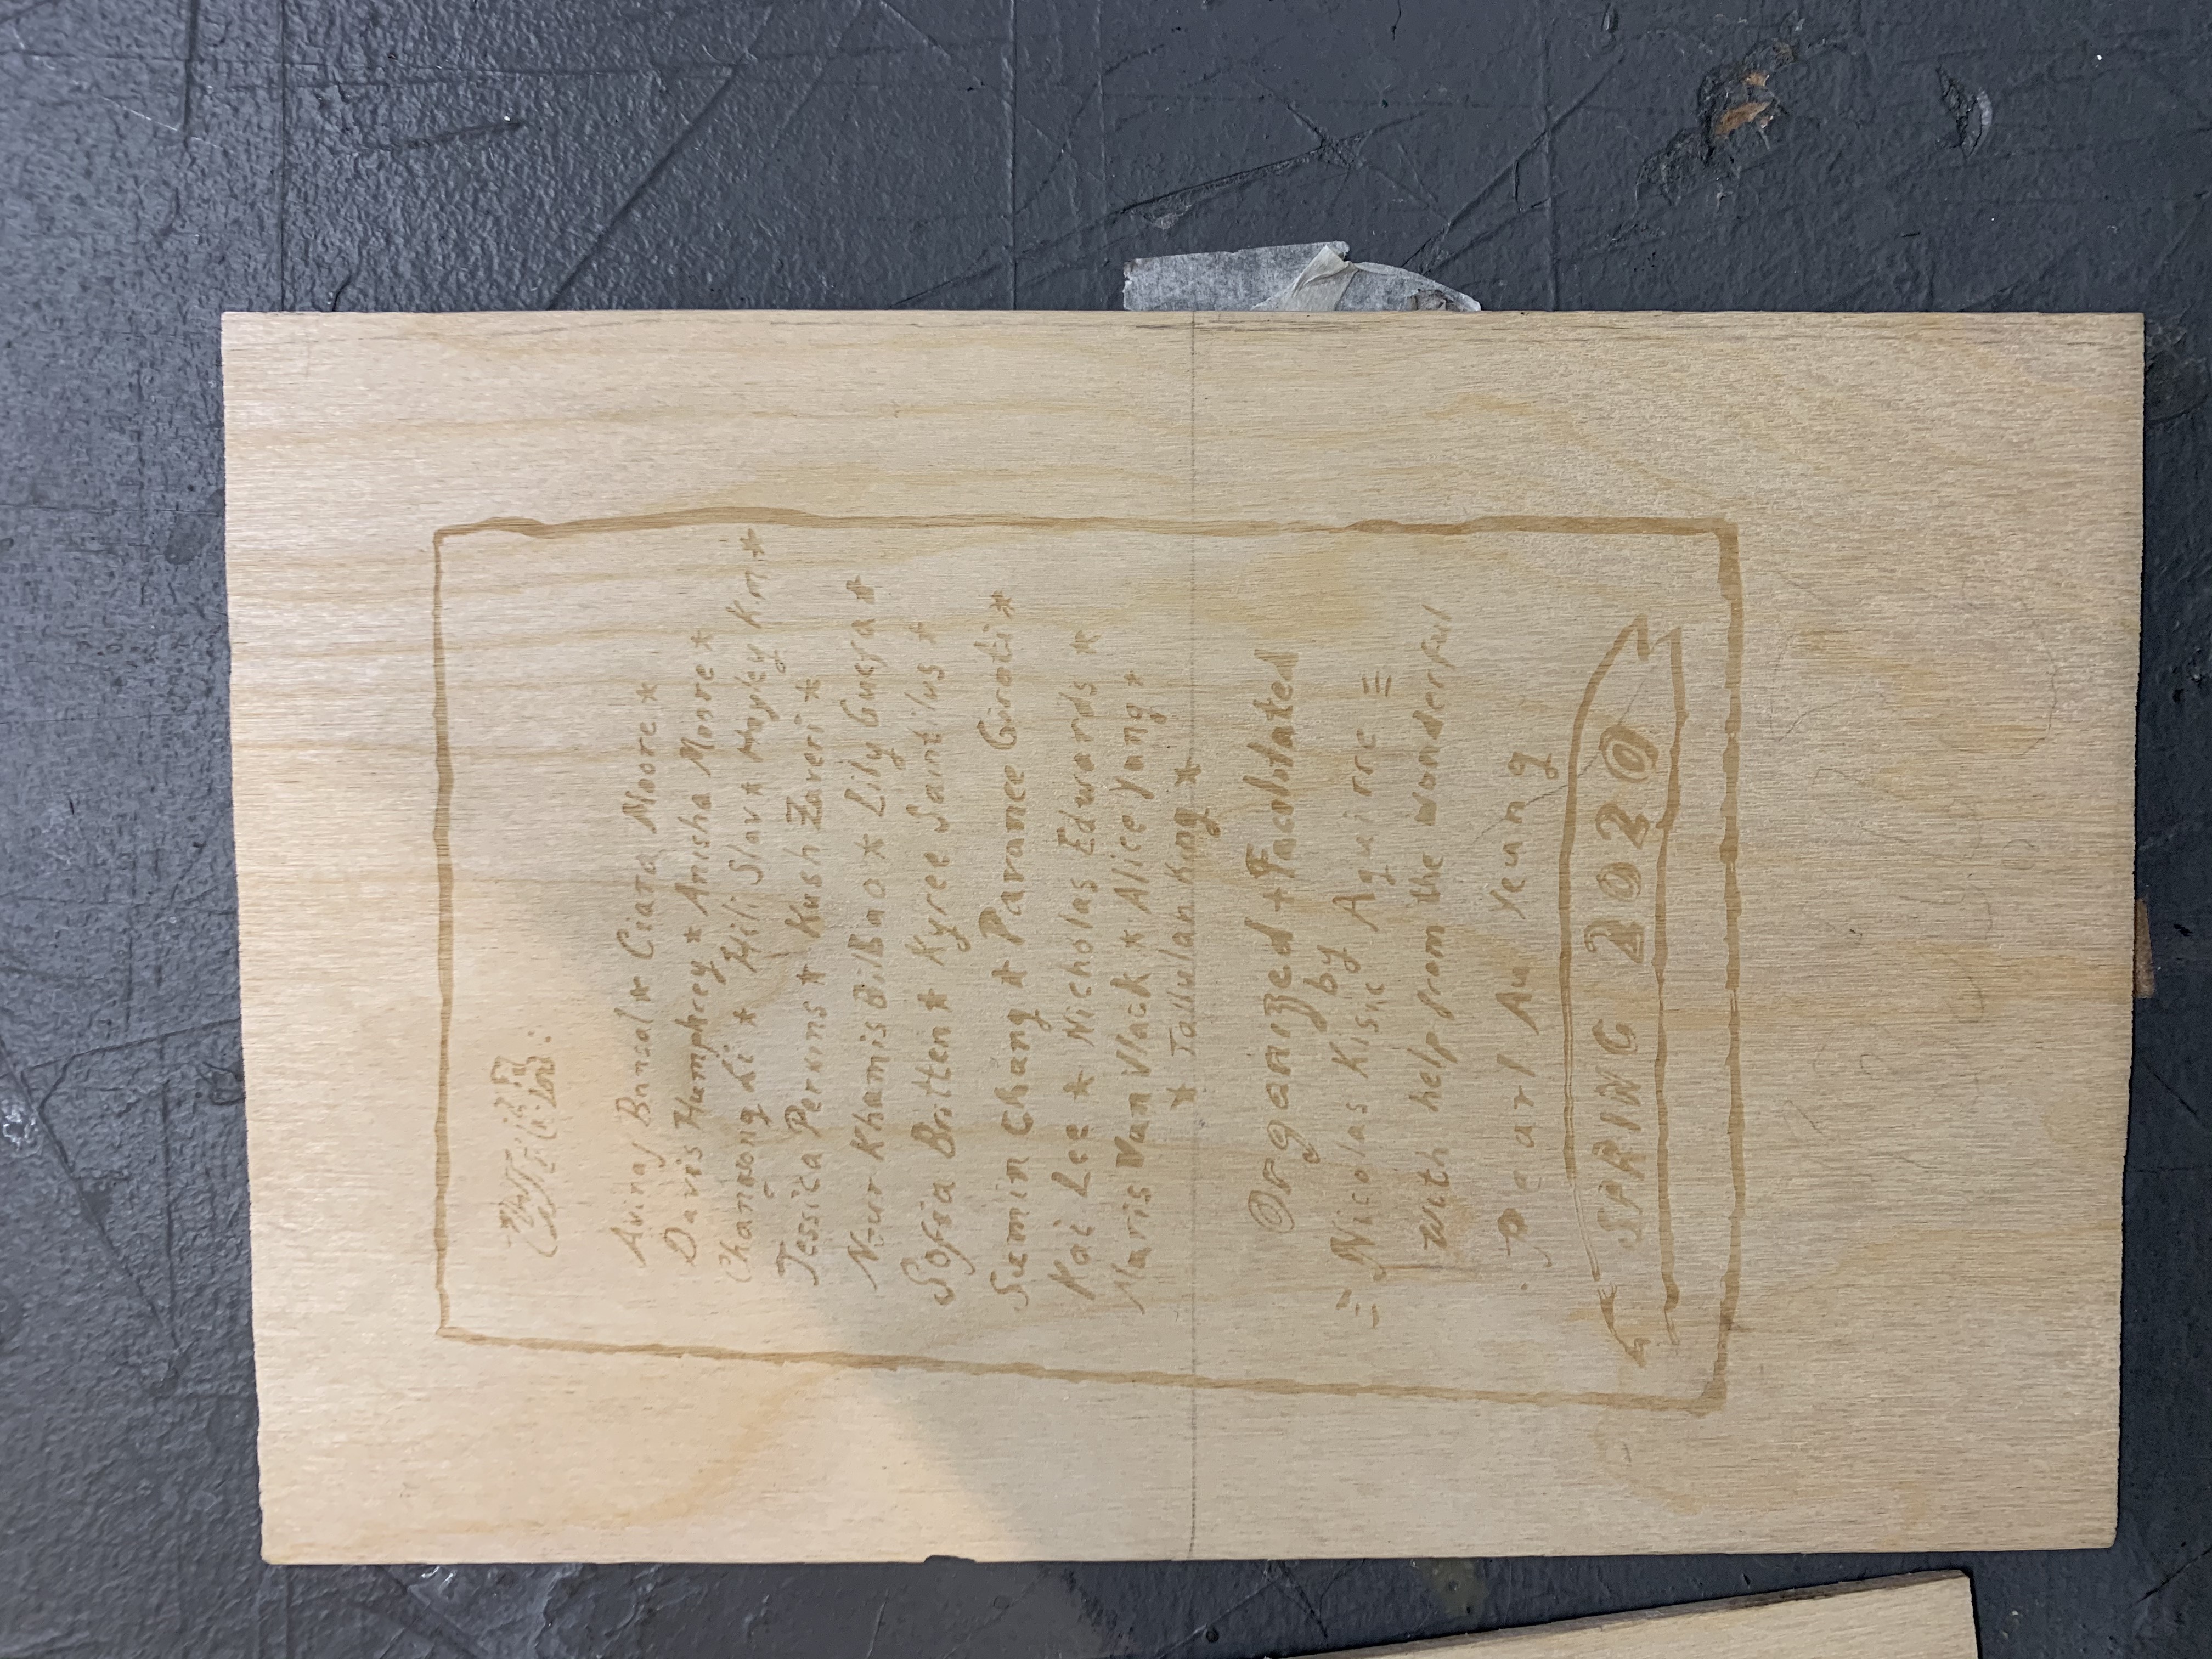 Avinaj Bansal * Ciara Moore *
Davis Humphrey * Anisha Moore *
Li * Hili Slav * Hayley Kim *
Jessica Perkins * Kush Zaveri *
Nour Khamis Bilbao * Lily Gucya *
Sofia Britten * Kyree Saintilus *
Sumin Chang * Paranee Girati *
Kai Lee * Nicholas Edwards *
Maris Van Vlack * Alice Yang *
* Tallulah King *
Organized + Faciliated
by
= Nicolas Kisic Aguirre =
With help from the wonderful
Pearl Au Yeung
SPRING 2020